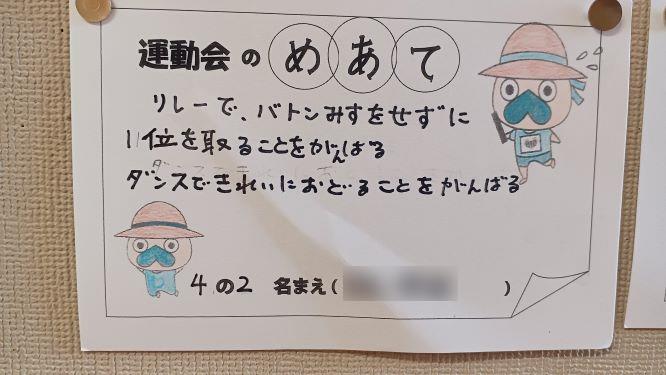 運動会のめあて
リレーで、バトンみすをせずに
1位を取ることをがんばる
ダンスできれいにおどることをがんばる
4の2 名まえ( )